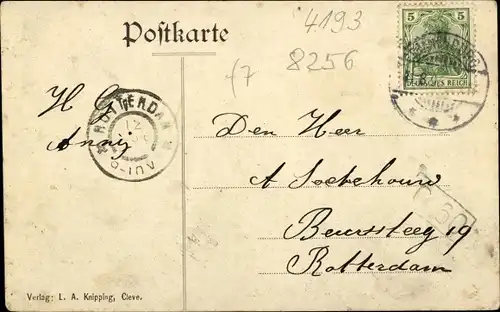 Postkarte
4193
f7 8256
5 5
DEUTSCHES REICH
H G
Anny
ROTTERDAM
Den Heer
A Soetehouw
Beurssteeg 19
Rotterdam
Verlag: L. A. Knipping, Cleve.